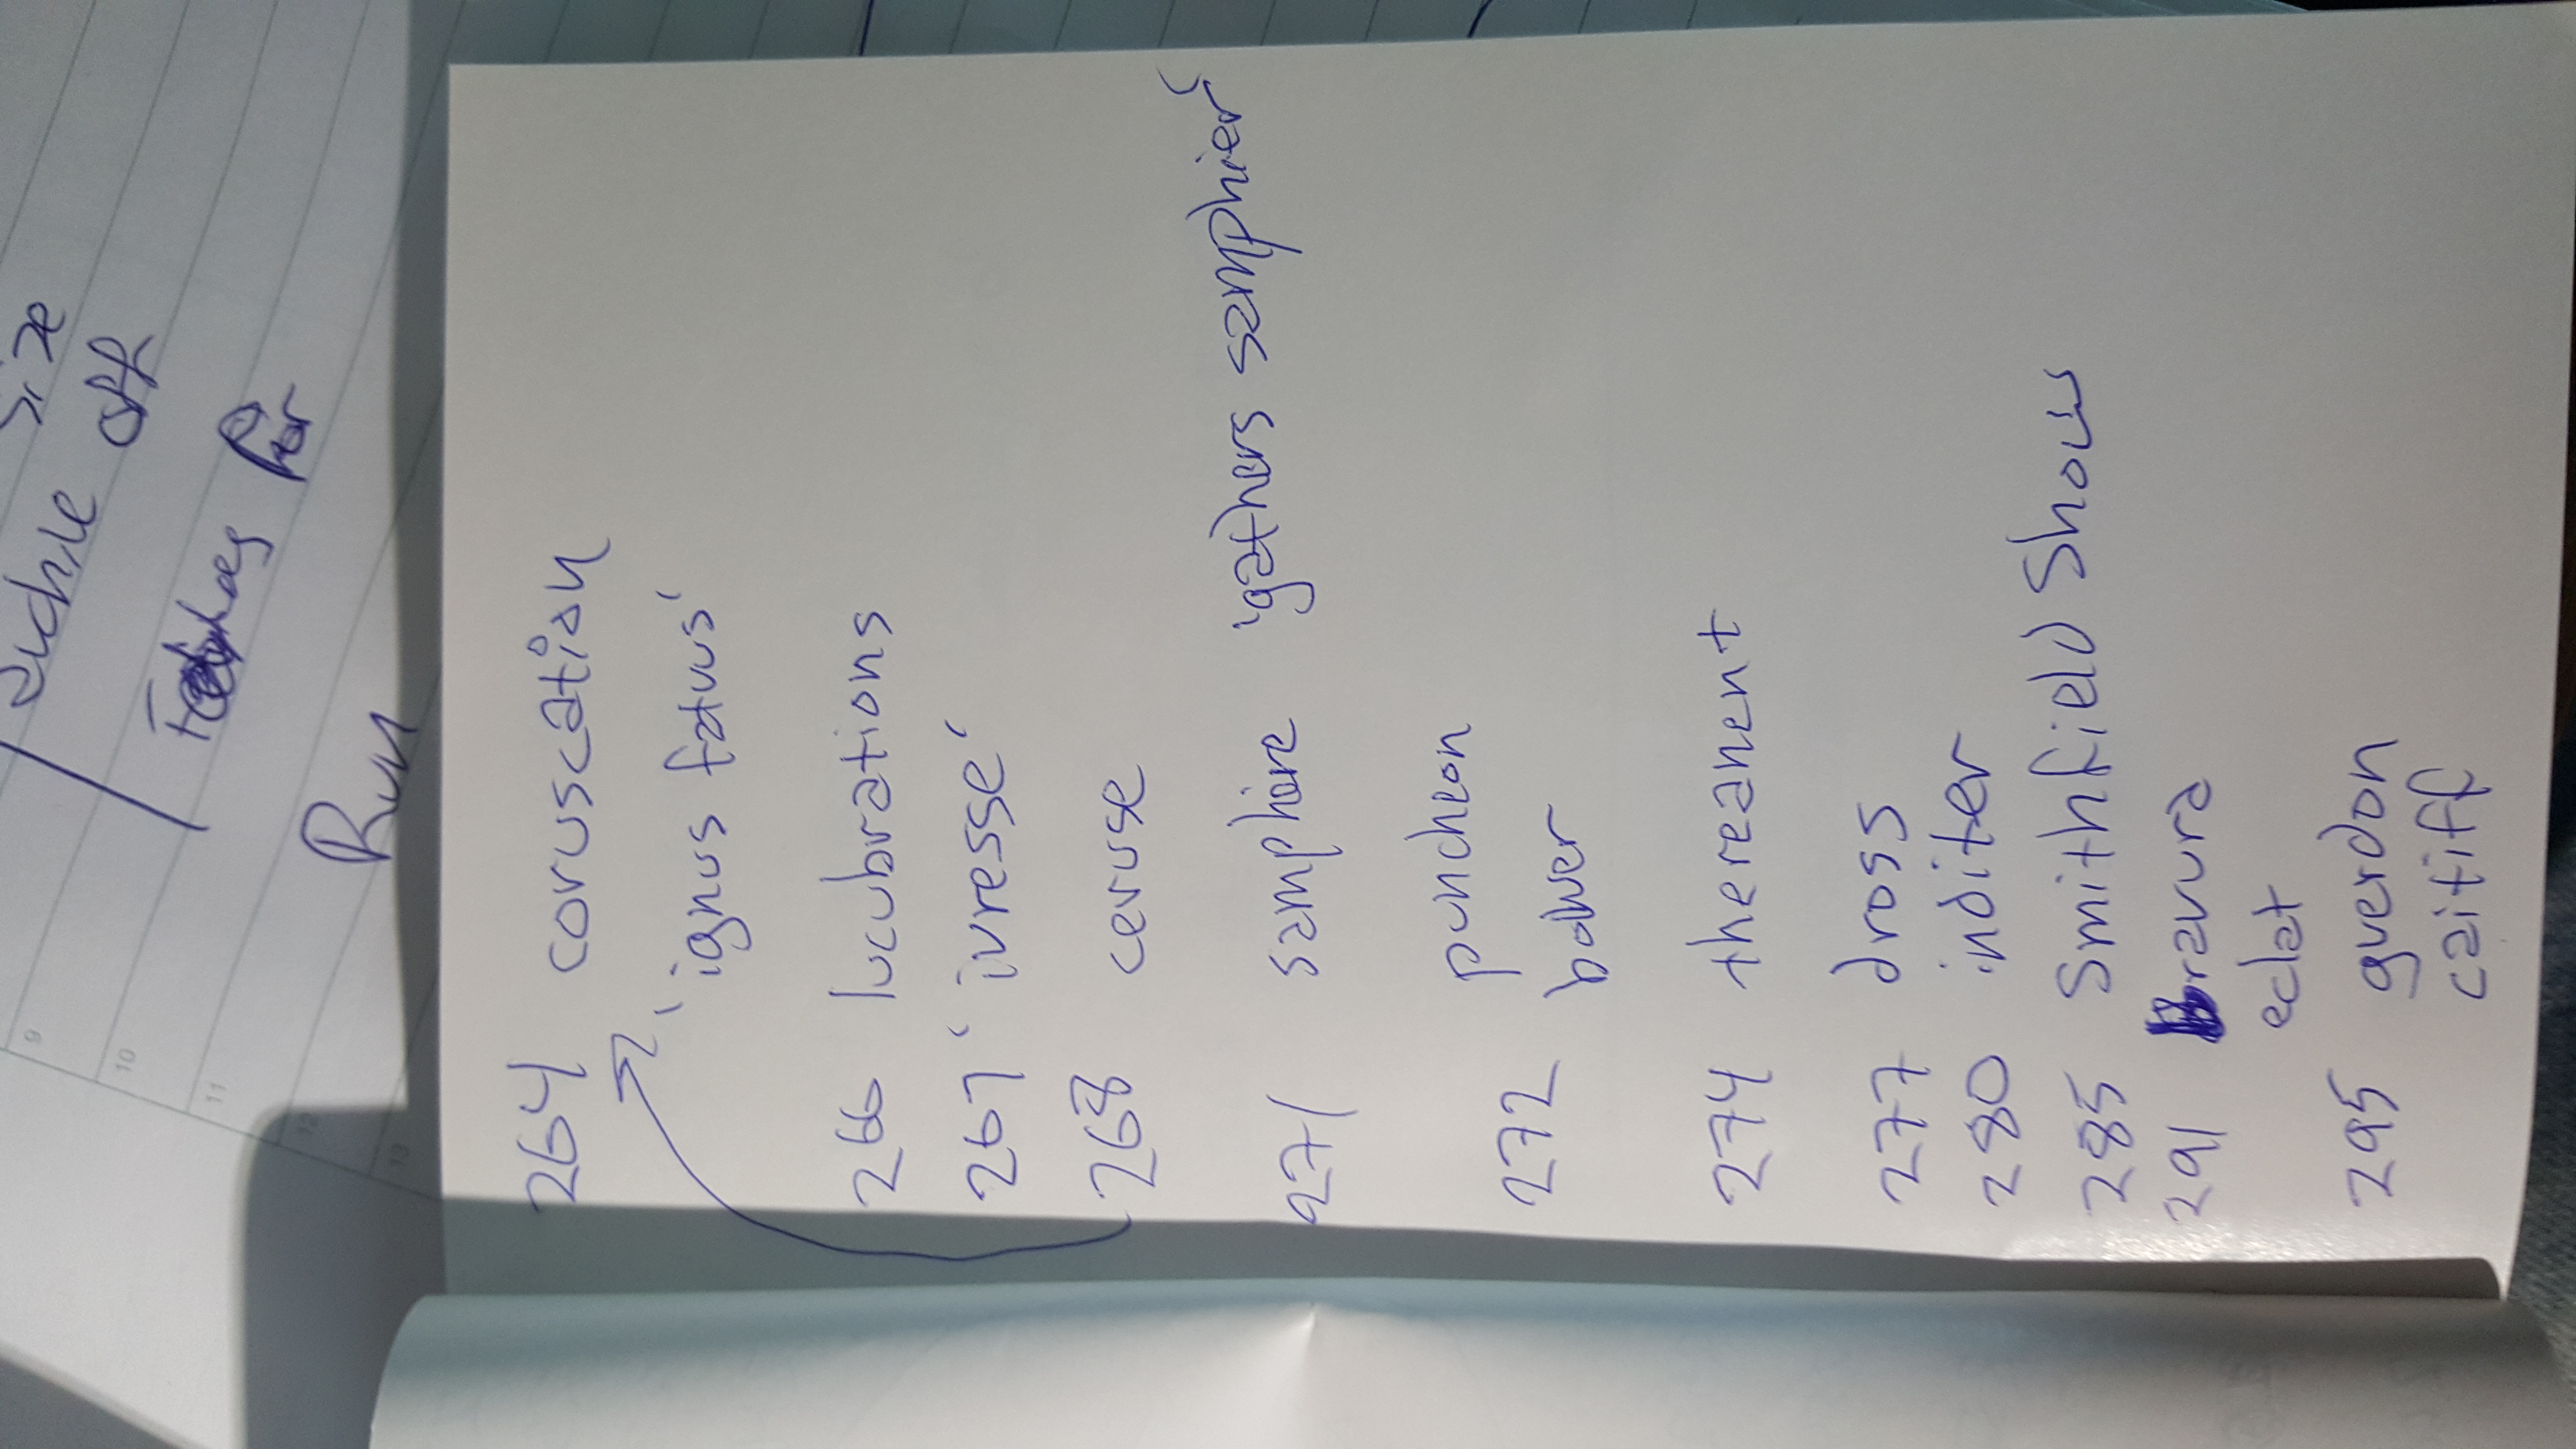 size
off
For
Run
9
10
11
12
13
264 coruscation
'ignus fatuus'
266 lucubrations
267 'ivresse'
268 ceruse
271 samphire 'gathers samphier'
puncheon
272 bower
274 thereanent
277 dross
280 inditer
285 Smithfield Shows
291 bravura
eclat
295 guerdon
caitiff